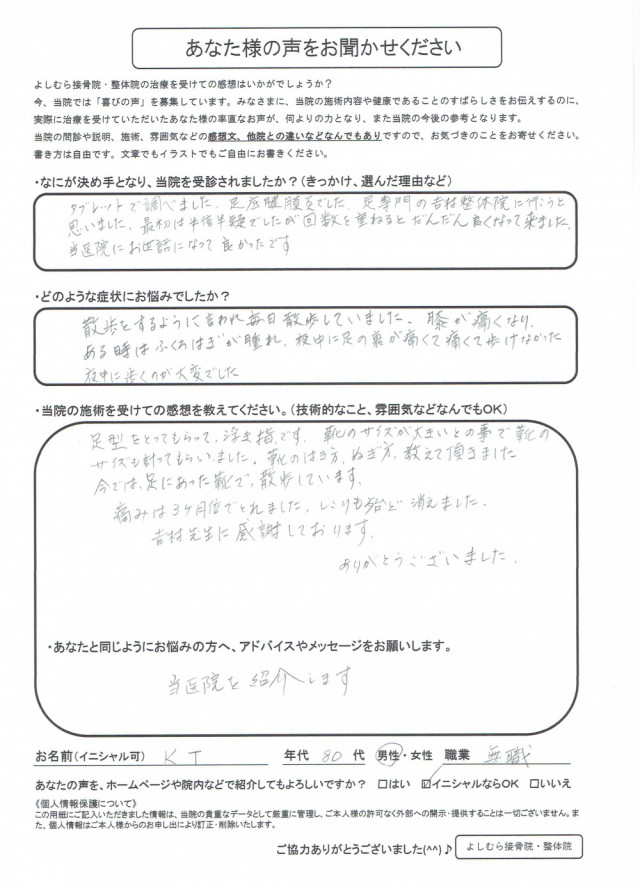 あなた様の声をお聞かせください
よしむら接骨院・整体院の治療を受けての感想はいかがでしょうか?
今、当院では「喜びの声」を募集しています。みなさまに、当院の施術内容や健康であることのすばらしさをお伝えするのに、
実際に治療を受けていただいたあなた様の率直なお声が、何よりの力となり、また当院の今後の参考となります。
当院の問診や説明、施術、雰囲気などの感想文、他院との違いなどなんでもありですので、お気づきのことをお寄せください。
書き方は自由です。文章でもイラストでもご自由にお書きください。
・なにが決め手となり、当院を受診されましたか?(きっかけ、選んだ理由など)
タブレットで調べました、足底腱膜炎でした、足専門の吉村整体院に行こうと
思いました、最初は半信半疑でしたが回数を重ねるとだんだん良くなって来ました、
当医院にお世話になって良かったです
・どのような症状にお悩みでしたか?
散歩をするように言われ毎日散歩していました、膝が痛くなり、
ある時はふくらはぎが腫れ、夜中に足の裏が痛くて痛くて歩けなかった
夜中に歩くのが大変でした
・当院の施術を受けての感想を教えてください。(技術的なこと、雰囲気などなんでもOK)
足型をとってもらって、浮き指です、靴のサイズが大きいとの事で靴の
サイズも計ってもらいました、靴のはき方、ぬぎ方、教えて頂きました
今では、足にあった靴で、散歩しています、
痛みは3ヶ月位でとれました、しこりも殆ど消えました、
吉村先生に感謝しております、
ありがとうございました、
・あなたと同じようにお悩みの方へ、アドバイスやメッセージをお願いします。
当医院を紹介します
お名前(イニシャル可) KT 年代 80 代 男性・女性 職業 無職
あなたの声を、ホームページや院内などで紹介してもよろしいですか? □はい ☑イニシャルならOK □いいえ
《個人情報保護について》
この用紙にご記入いただきました情報は、当院の貴重なデータとして厳重に管理し、ご本人様の許可なく外部への開示・提供することは一切ございません。ま
た、個人情報はご本人様からのお申し出により訂正・削除いたします。
ご協力ありがとうございました(^^)♪ よしむら接骨院・整体院